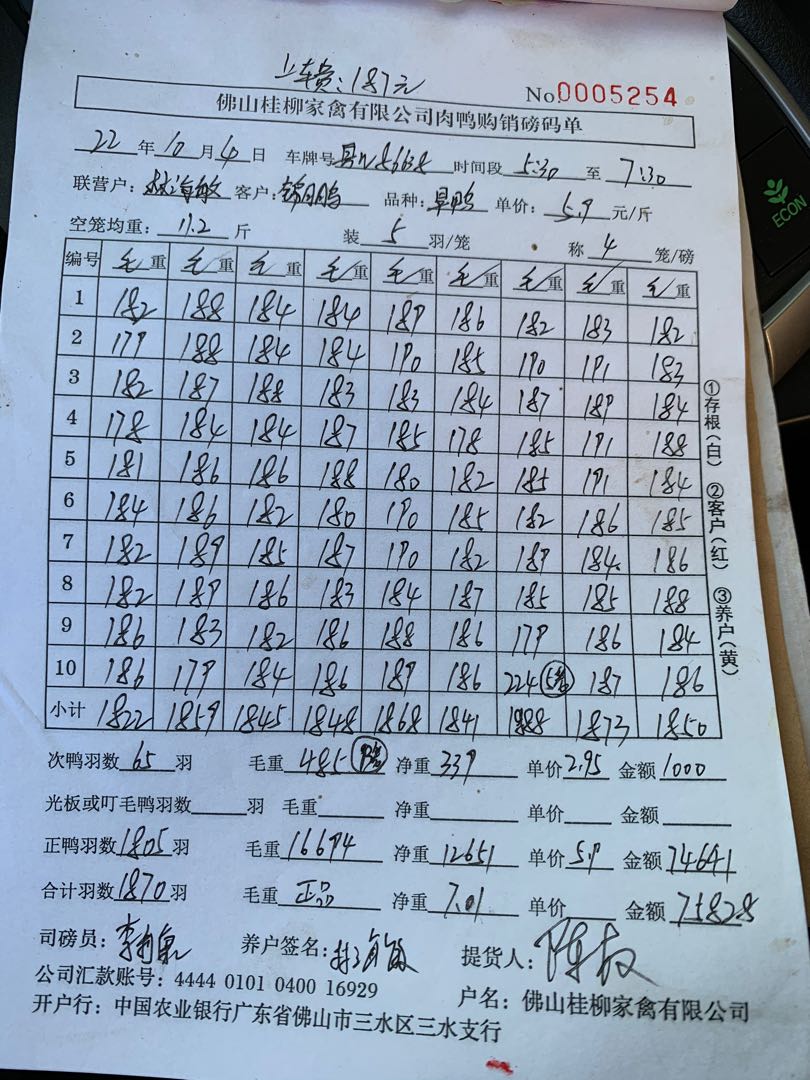 上车费:187元
No.0005254
佛山桂柳家禽有限公司肉鸭购销磅码单
22年10月4日 车牌号 时间段 5:30 至 7:30
联营户: 林海敏 客户: 锦鹏 品种: 旱鸭 单价: 5.9 元/斤
空笼均重: 11.2 斤 装 5 羽/笼 称 4 笼/磅
编号 毛重 毛重 毛重 毛重 毛重 毛重 毛重 毛重 毛重
1 182 188 184 184 189 186 182 183 182
2 179 188 184 184 190 185 190 191 183
3 182 187 188 183 183 184 187 189 184
4 178 184 184 187 185 178 185 191 188
5 181 186 186 188 180 182 185 191 184
6 184 186 182 180 190 185 182 186 185
7 182 189 185 187 190 182 189 184 186
8 182 189 186 183 184 187 185 185 188
9 186 183 182 186 188 186 179 186 184
10 186 179 184 186 189 186 224 5笼 187 186
小计 1822 1859 1845 1848 1868 1841 1888 1873 1850
①存根(白) ②客户(红) ③养户(黄)
次鸭羽数 65 羽 毛重 485 净重 339 单价 2.95 金额 1000
光板或叮毛鸭羽数 羽 毛重 净重 单价 金额
正鸭羽数 1805 羽 毛重 16694 净重 12651 单价 5.9 金额 74641
合计羽数 1870 羽 毛重 正品 净重 7.01 单价 金额 75828
司磅员: 养户签名: 林海敏 提货人:
公司汇款账号: 4444 0101 0400 16929 户名: 佛山桂柳家禽有限公司
开户行: 中国农业银行广东省佛山市三水区三水支行
ECON